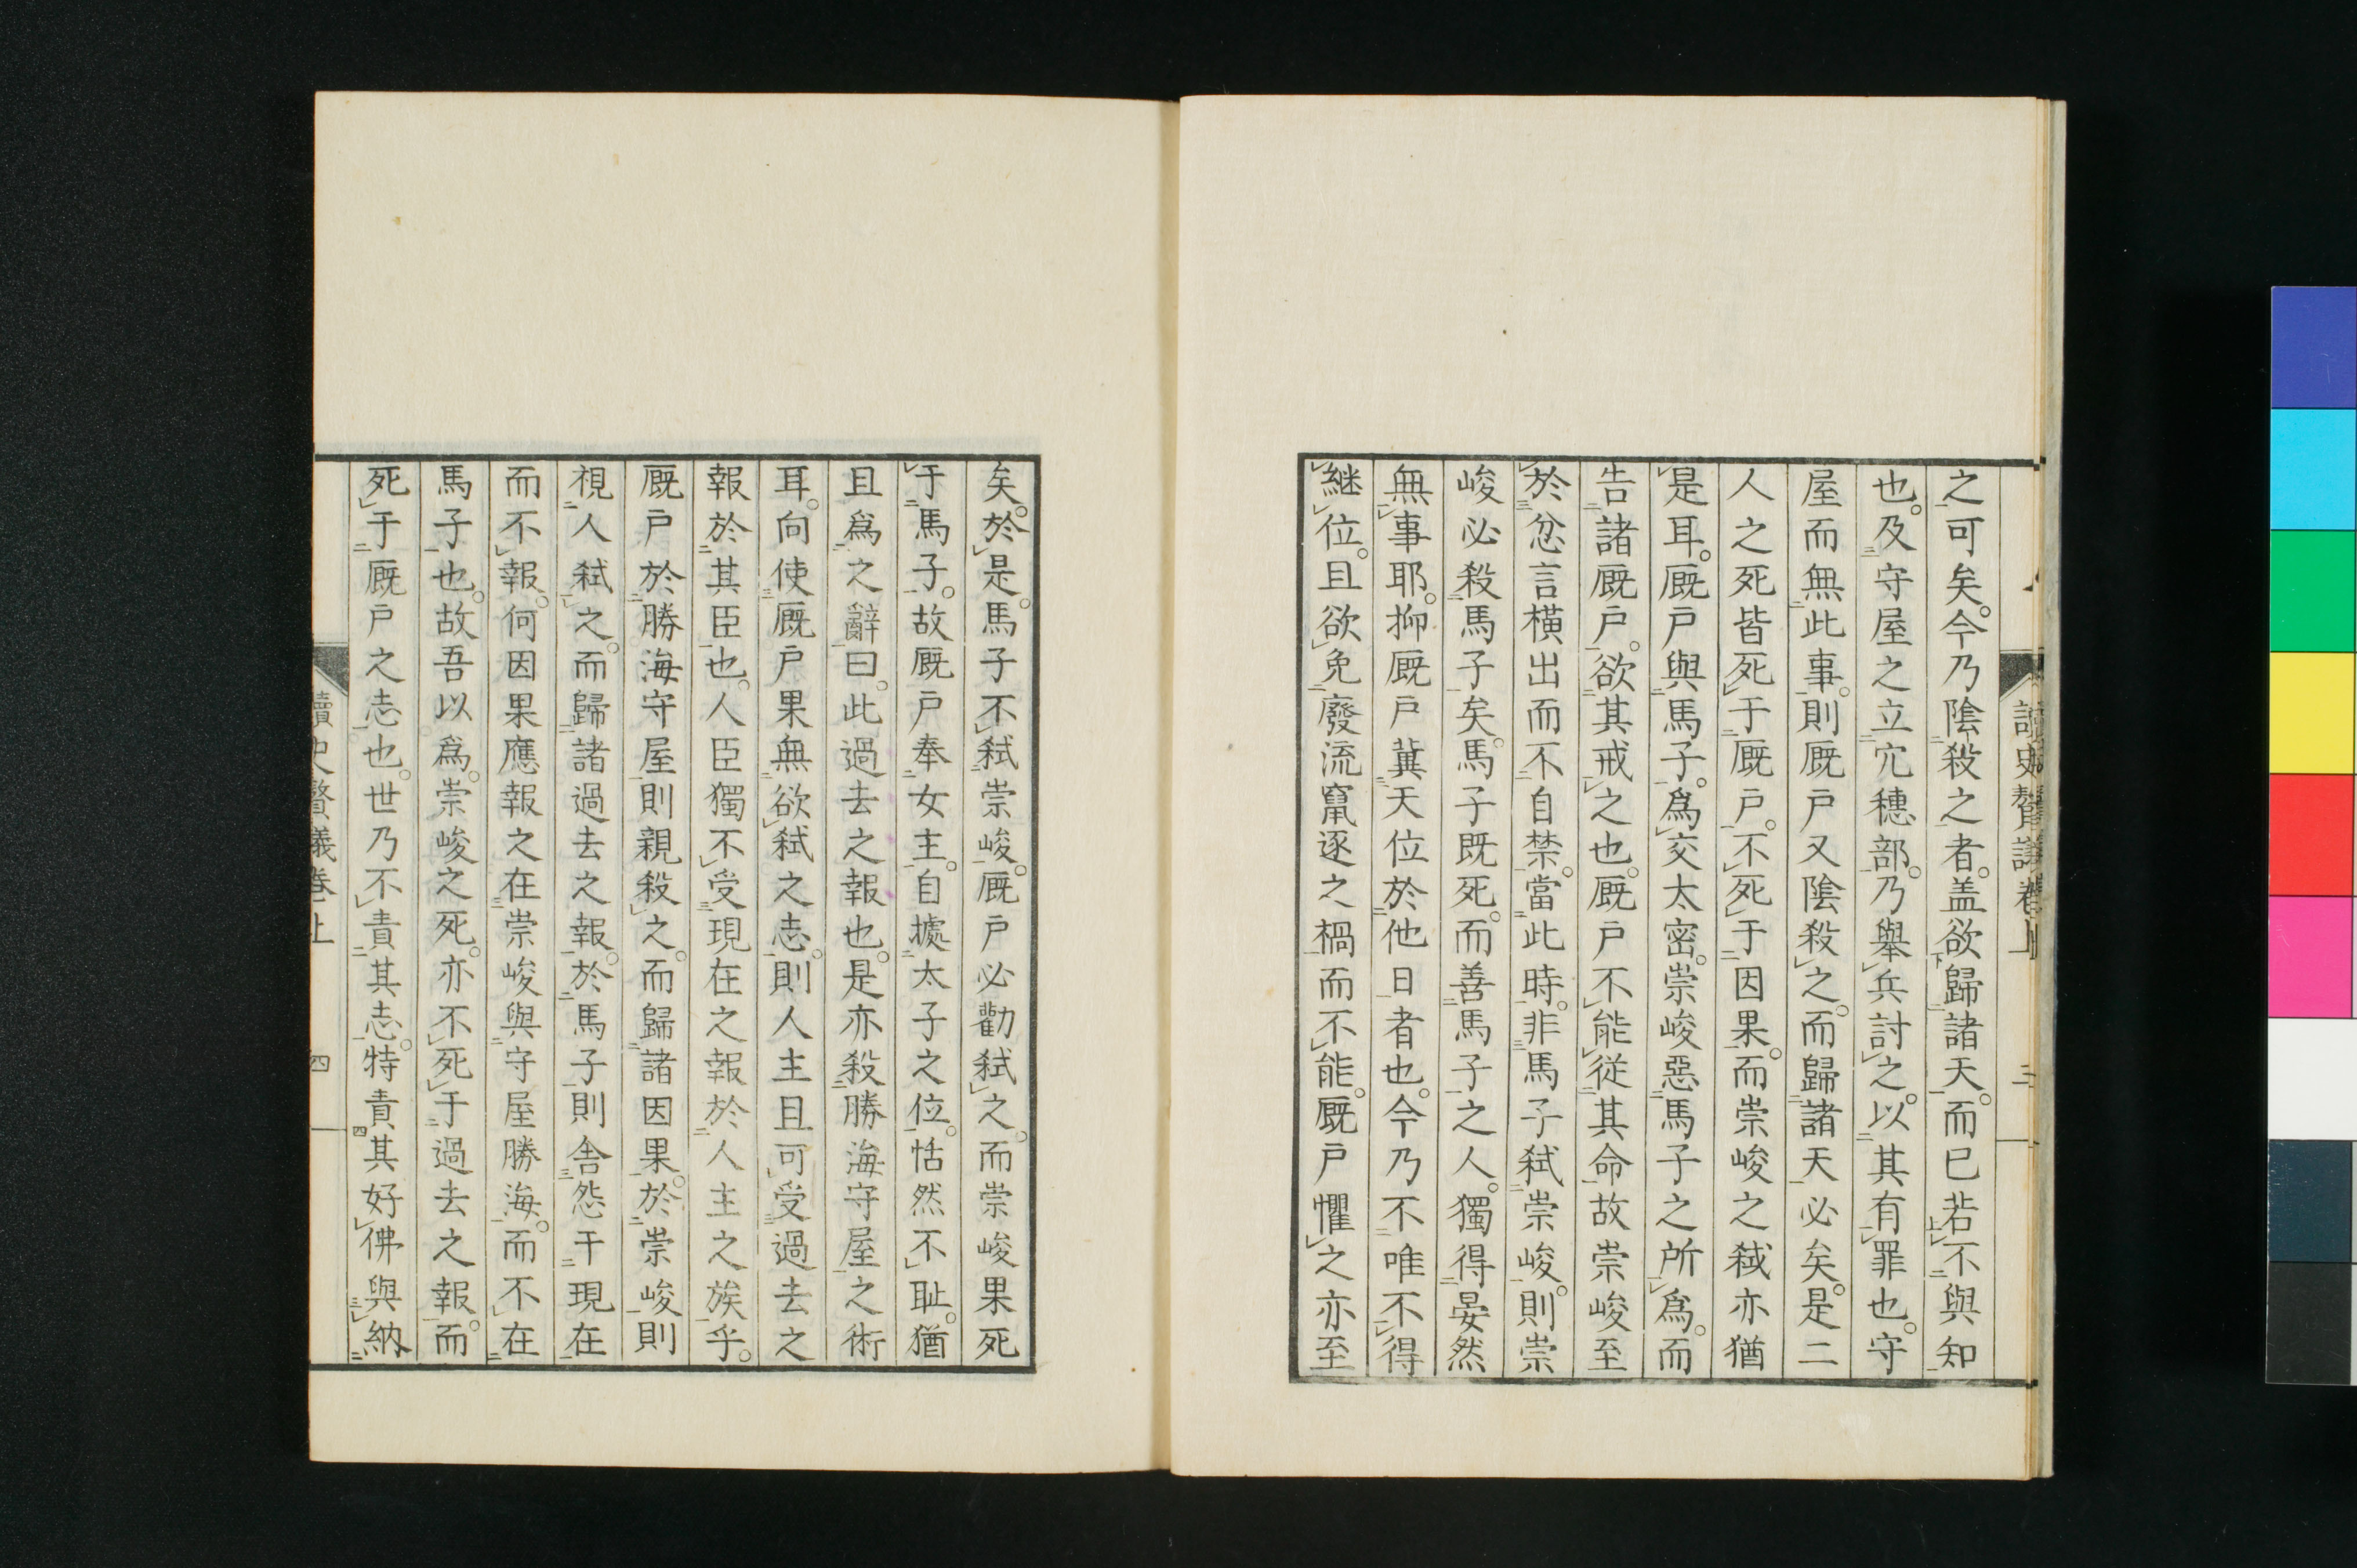 之可矣。今乃陰殺之者。盖欲歸諸天。而已若不與知
也。及守屋之立穴穗部。乃舉兵討之。以其有罪也。守
屋而無此事。則厩戸又陰殺之。而歸諸天必矣。是二
人之死皆死于厩戸。不死于因果。而崇峻之弑亦猶
是耳。厩戸與馬子。爲交太密。崇峻惡馬子之所爲。而
告諸厩戸。欲其戒之也。厩戸不能從其命故崇峻至
於忿言橫出而不自禁。當此時。非馬子弑崇峻。則崇
峻必殺馬子矣。馬子既死。而善馬子之人。獨得晏然
無事耶。抑厩戸冀天位於他日者也。今乃不唯不得
継位。且欲免廢流竄逐之禍而不能。厩戸懼之亦至
讀史贅議卷上 三
矣。於是。馬子不弑崇峻。厩戸必勸弑之。而崇峻果死
于馬子。故厩戸奉女主。自據太子之位。恬然不耻。猶
且爲之辭曰。此過去之報也。是亦殺勝海守屋之術
耳。向使厩戸果無欲弑之志。則人主且可受過去之
報於其臣也。人臣獨不受現在之報於人主之族乎。
厩戸於勝海守屋則親殺之。而歸諸因果。於崇峻則
視人弑之。而歸諸過去之報。於馬子則舍怨于現在
而不報。何因果應報之在崇峻與守屋勝海。而不在
馬子也。故吾以爲。崇峻之死。亦不死于過去之報。而
死于厩戸之志也。世乃不責其志。特責其好佛與納
讀史贅議卷上 四